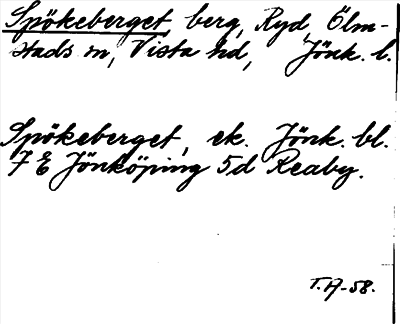 Spökeberget, berg, Ryd, Ölm-
stads sn, Vista hd, Jönk. l.
Spökeberget, ek. Jönk. bl.
7 E Jönköping 5d Reaby.
T.A-58.